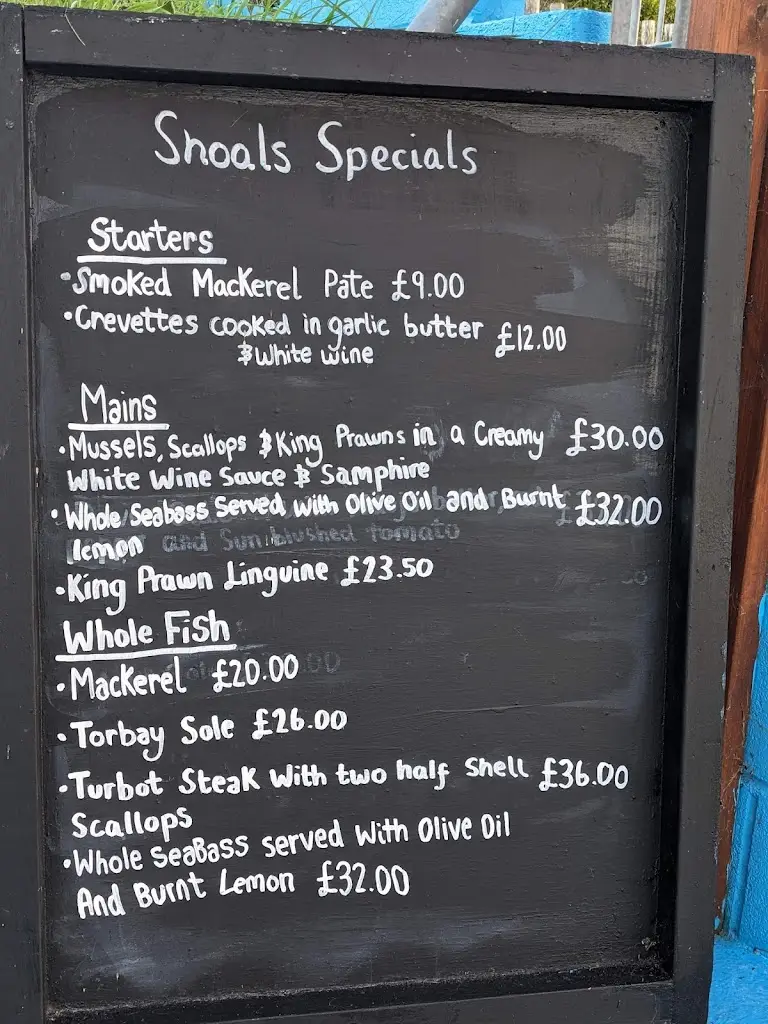 Shoals Specials
Starters
•Smoked Mackerel Pate £9.00
•Crevettes cooked in garlic butter £12.00
& White wine
Mains
•Mussels, Scallops & King Prawns in a Creamy £30.00
White Wine Sauce & Samphire
•Whole Seabass Served with Olive Oil and Burnt £32.00
lemon and Sun blushed tomato
•King Prawn Linguine £23.50
Whole Fish
•Mackerel £20.00
•Torbay Sole £26.00
•Turbot Steak With two half Shell £36.00
Scallops
•Whole SeaBass served With Olive Oil
And Burnt Lemon £32.00